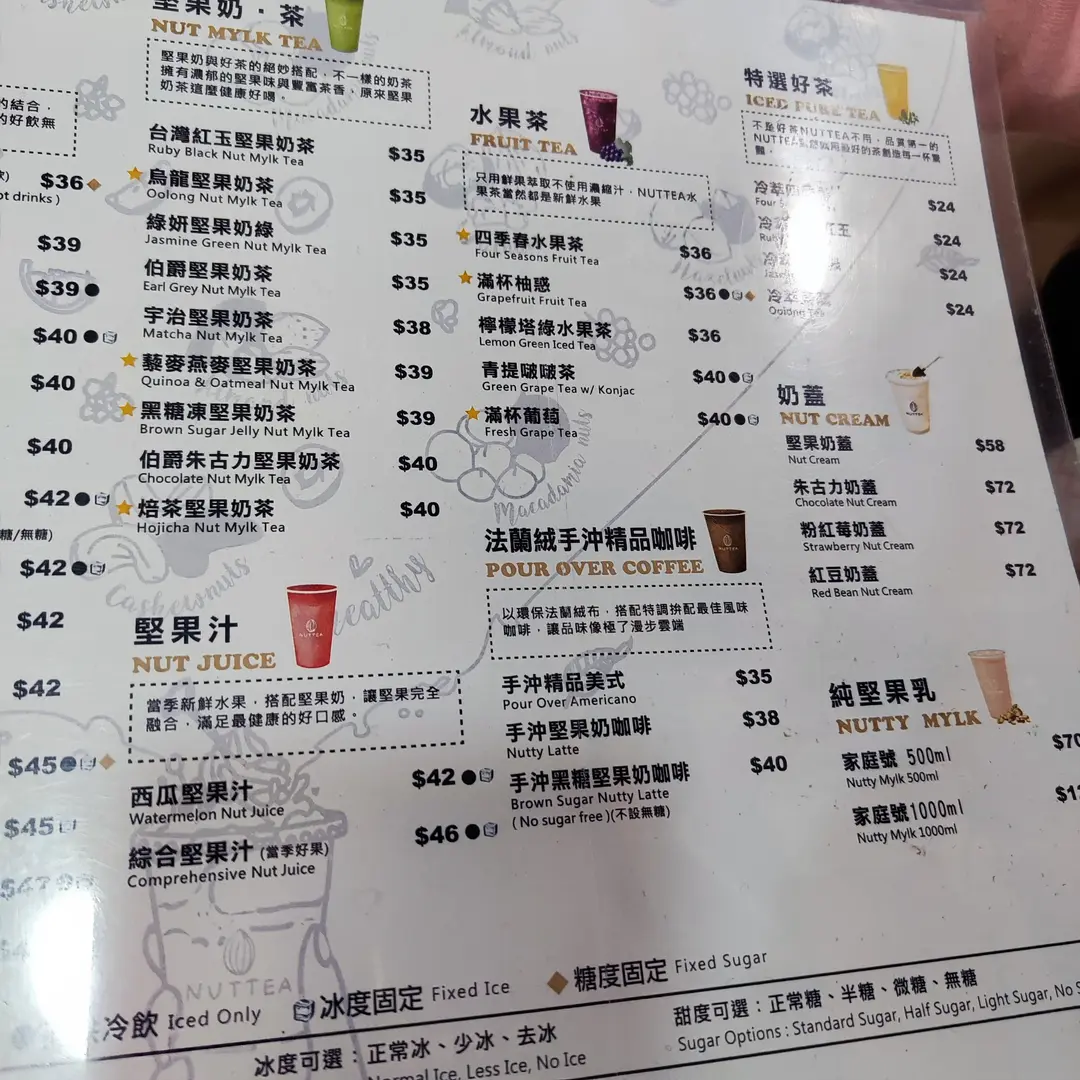 的結合，
的好飲無
$36
ot drinks )
$39
$39
$40
$40
$40
$42
糖/無糖)
$42
$42
$42
$45
$45
堅果奶．茶
NUT MYLK TEA
堅果奶與好茶的絕妙搭配，不一樣的奶茶
擁有濃郁的堅果味與豐富茶香，原來堅果
奶茶這麼健康好喝。
台灣紅玉堅果奶茶 $35
Ruby Black Nut Mylk Tea
烏龍堅果奶茶 $35
Oolong Nut Mylk Tea
綠妍堅果奶綠 $35
Jasmine Green Nut Mylk Tea
伯爵堅果奶茶 $35
Earl Grey Nut Mylk Tea
宇治堅果奶茶 $38
Matcha Nut Mylk Tea
藜麥燕麥堅果奶茶 $39
Quinoa & Oatmeal Nut Mylk Tea
黑糖凍堅果奶茶 $39
Brown Sugar Jelly Nut Mylk Tea
伯爵朱古力堅果奶茶 $40
Chocolate Nut Mylk Tea
焙茶堅果奶茶 $40
Hojicha Nut Mylk Tea
Cashewnuts
Healthy
堅果汁
NUT JUICE
NUTTEA
當季新鮮水果，搭配堅果奶，讓堅果完全
融合，滿足最健康的好口感。
西瓜堅果汁 $42
Watermelon Nut Juice
綜合堅果汁 (當季好果) $46
Comprehensive Nut Juice
NUTTEA
水果茶
FRUIT TEA
只用鮮果萃取不使用濃縮汁，NUTTEA水
果茶當然都是新鮮水果
四季春水果茶 $36
Four Seasons Fruit Tea
滿杯柚惑 $36
Grapefruit Fruit Tea
檸檬塔綠水果茶 $36
Lemon Green Iced Tea
青提啵啵茶 $40
Green Grape Tea w/ Konjac
滿杯葡萄 $40
Fresh Grape Tea
Macadamia nuts
法蘭絨手沖精品咖啡
POUR OVER COFFEE
NUTTEA
以環保法蘭絨布，搭配特調拚配最佳風味
咖啡，讓品味像極了漫步雲端
手沖精品美式 $35
Pour Over Americano
手沖堅果奶咖啡 $38
Nutty Latte
手沖黑糖堅果奶咖啡 $40
Brown Sugar Nutty Latte
( No sugar free )(不設無糖)
Almond nuts
特選好茶
ICED PURE TEA
不是好茶NUTTEA不用，品質第一的
$24
$24
$24
$24
Oolong Tea
奶蓋
NUT CREAM
NUTTEA
堅果奶蓋 $58
Nut Cream
朱古力奶蓋 $72
Chocolate Nut Cream
粉紅莓奶蓋 $72
Strawberry Nut Cream
紅豆奶蓋 $72
Red Bean Nut Cream
純堅果乳
NUTTY MYLK
家庭號 500ml $70
Nutty Mylk 500ml
家庭號1000ml
Nutty Mylk 1000ml
冷飲 Iced Only 冰度固定 Fixed Ice 糖度固定 Fixed Sugar
冰度可選：正常冰、少冰、去冰
Normal Ice, Less Ice, No Ice
甜度可選：正常糖、半糖、微糖、無糖
Sugar Options : Standard Sugar, Half Sugar, Light Sugar, No